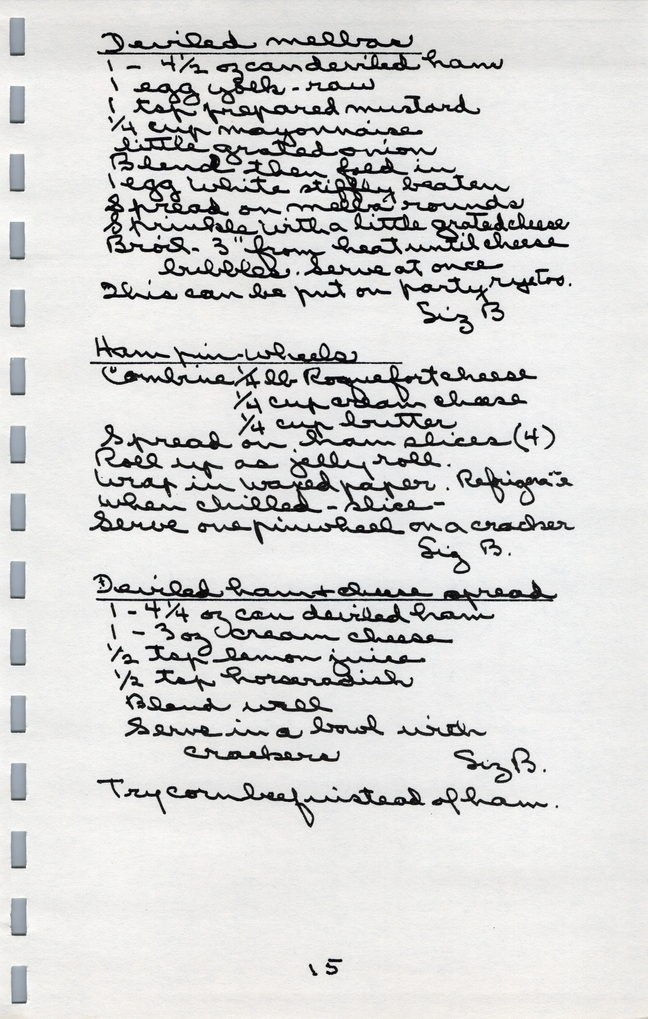 Deviled melbas
1 - 4 1/2 oz can deviled ham
1 egg yolk - raw
1 tsp prepared mustard
1/4 cup mayonnaise
little grated onion
Blend then fold in
1 egg white stiffly beaten
Spread on melba rounds
Sprinkle with a little grated cheese
Broil - 3" from heat until cheese
bubbles. Serve at once
This can be put on party rye too.
Siz B
Ham pin-wheels
Combine 1/4 lb Roquefort cheese
1/4 cup cream cheese
1/4 cup butter
Spread on ham slices (4)
Roll up as jelly roll.
Wrap in waxed paper. Refrigerate
when chilled - slice -
Serve one pinwheel on a cracker
Siz B.
Deviled ham + cheese spread
1 - 4 1/4 oz can deviled ham
1 - 3 oz cream cheese
1/2 tsp lemon juice
1/2 tsp horseradish
Blend well
Serve in a bowl with
crackers
Siz B.
Try corn beef instead of ham.
15